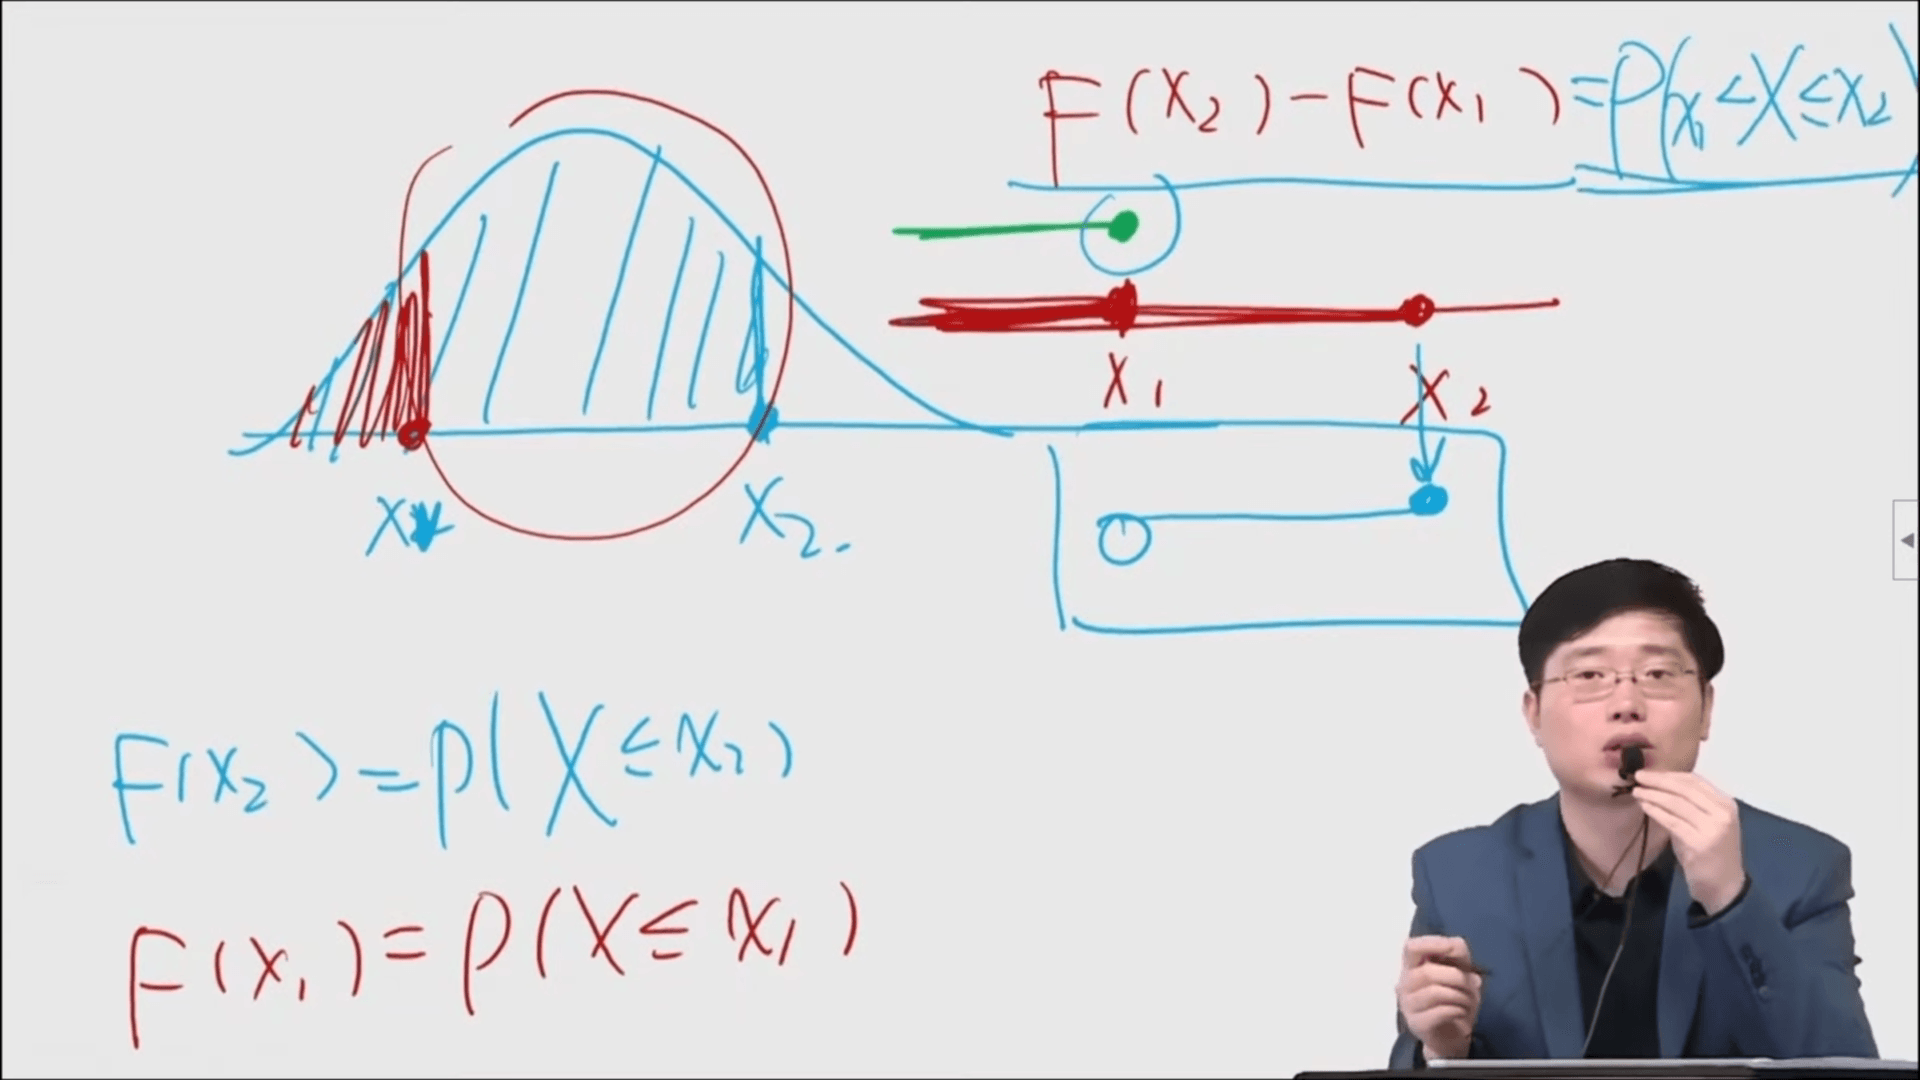 F(x₂)-F(x₁)=P(x₁<X≤x₂)
x₁ x₂
x₂.
F(x₂)=P(X≤x₂)
F(x₁)=P(X≤x₁)